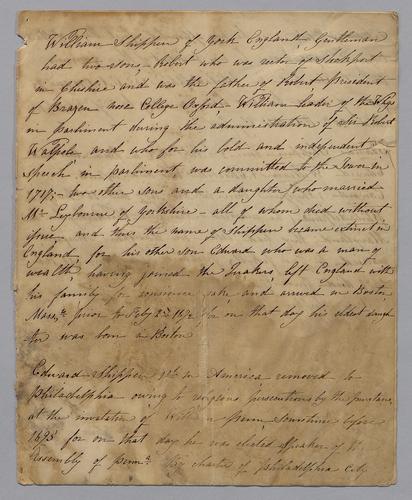 William Shippen of York England, Gentleman
had two sons, Robert who was rector of Stockport
in Cheshire and was the father of Robert President
of Brazen nose College Oxford, William leader of the Whigs
in parliment during the administration of Sir Robert
Walpole and who for his bold and independent
speech in parliment, was committed to the Tower in
1717; two other sons and a daughter who married
Mr Leybourne of Yorkshire - all of whom died without
issue, and thus the name of Shippen became extinct in
England, for his other son Edward who was a man of
wealth, having joined the Quakers, left England with
his family for consience sake and arrived in Boston
Massts prior to Feby 2nd for on that day his eldest daugh
ter was born in Boston
Edward Shippen 1st in America removed to
Philadelphia owing to religious persecutions by the puritans,
at the invitation of William Penn, sometime before
1695 for on that day he was elected speaker of the
Assembly of Penna. charter of Philadelphia